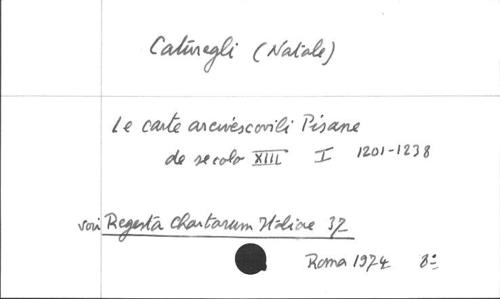 Caturegli (Natale)
Le carte arcivescovili Pisane
de secolo XIII I 1201-1238
voir Regesta Chartarum Italiae 37
Roma 1974 8º